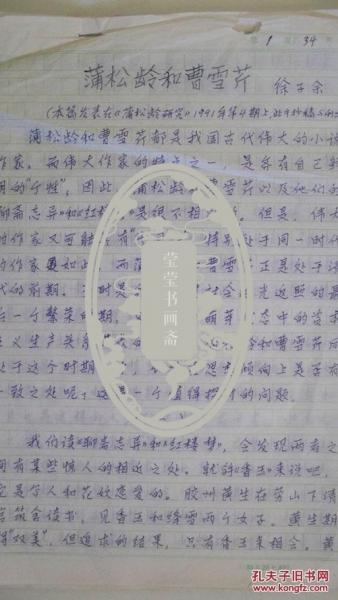 1 34
蒲松龄和曹雪芹 徐子余
(本篇发表在《蒲松龄研究》1991年第4期上,此
蒲松龄和曹雪芹都是我国古代伟大的小说
作家。两伟大作家的特点之一,是各有自己鲜
明的“个性”,因此 蒲松龄 曹雪芹以及他们的
聊斋志异》和《红楼梦》是很不相 。但是,伟大
的作家又可能 有 特别 处于同一时代
的作家更如此。而蒲 曹雪芹正是处于
代的前期。 时是 社会 光返照的最
后一个繁荣时期。 萌芽 态中的资本
主义生产关系 蒲松龄和曹雪芹
处于这个时期 思想倾向上是否有
一致之处呢?这是一个值得探讨的问题。
我们读《聊斋志异》和《红楼梦》,会发现两者之
间有某些惊人的相近之处。就拿《香玉》来说吧,
它是写人和花妖恋爱的。胶州黄生在劳山下清
宫筑舍读书,见香玉和绛雪两个女子。黄生期
得双美”,但追求的结果,只有香玉来相会。黄
莹莹书画斋
孔夫子旧书网